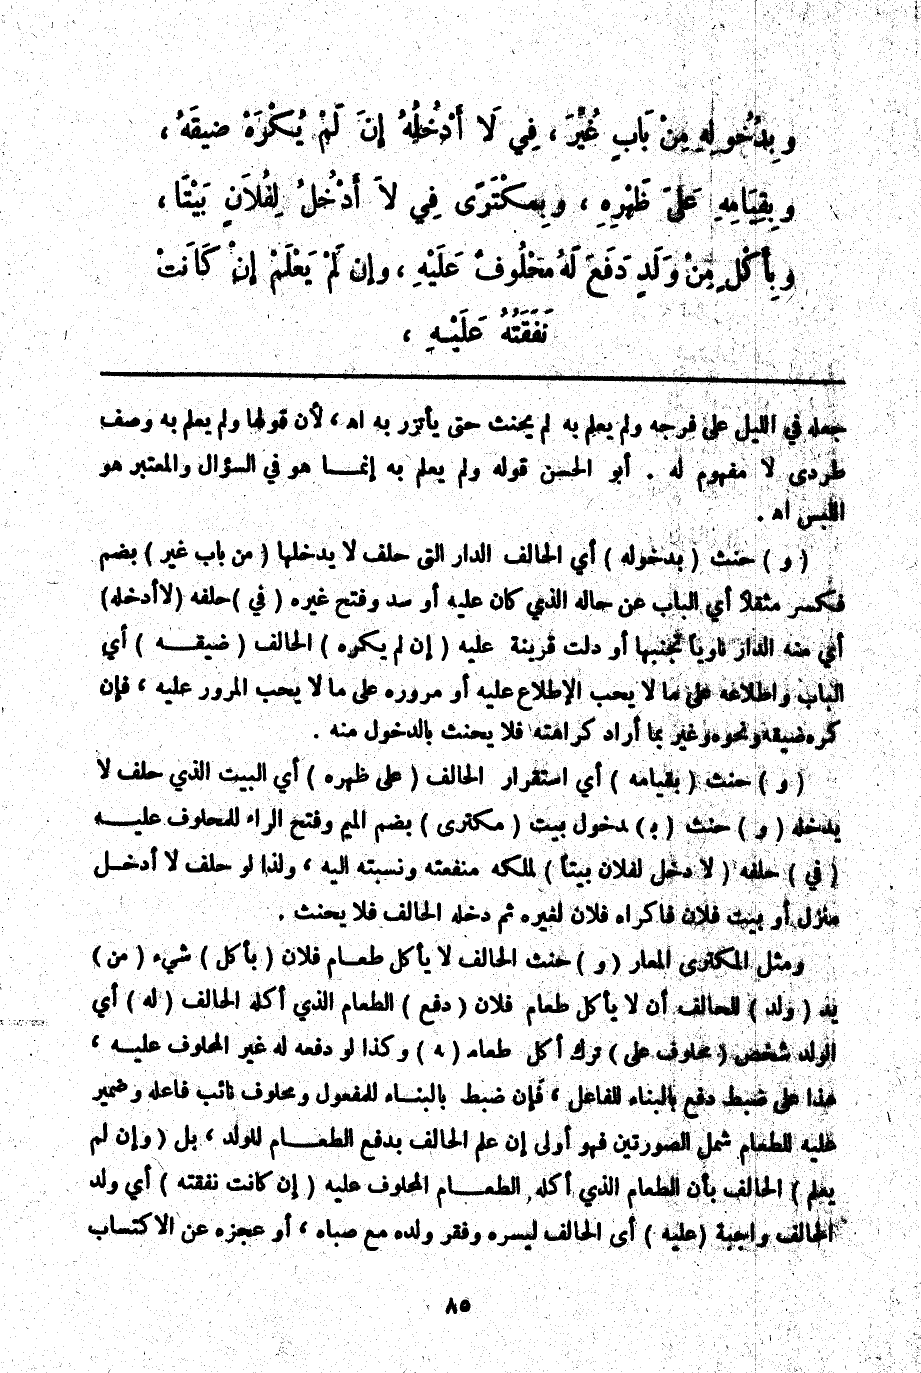 وَبِدُخُولِهِ مِنْ بَابٍ غُيِّرَ ، فِي لَا أَدْخُلُهُ إِنْ لَمْ يُكْرَهْ ضِيقُهُ ،
وَبِقِيَامِهِ عَلَى ظَهْرِهِ ، وَبِمُكْتَرًى فِي لَا أَدْخُلُ لِفُلَانٍ بَيْتًا ،
وَبِأَكْلٍ مِنْ وَلَدٍ دَفَعَ لَهُ مَحْلُوفٌ عَلَيْهِ ، وَإِنْ لَمْ يَعْلَمْ إِنْ كَانَتْ
نَفَقَتُهُ عَلَيْهِ ،
جعله في الليل على فرجه ولم يعلم به لم يحنث حتى يأتزر به اه ، لأن قولها ولم يعلم به وصف
طردى لا مفهوم له . أبو الحسن قوله ولم يعلم به إنما هو في السؤال والمعتبر هو
اللبس اه .
( و ) حنث ( بدخوله ) أي الحالف الدار التي حلف لا يدخلها ( من باب غير ) بضم
فكسر مثقلاً أي الباب عن حاله الذي كان عليه أو سد وفتح غيره ( في ) حلفه ( لا أدخله)
أي منه الدار ناوياً تجنبها أو دلت قرينة عليه ( إن لم يكره ) الحالف ( ضيقه ) أي
الباب واطلاعه على ما لا يحب الإطلاع عليه أو مروره على ما لا يحب المرور عليه ، فإن
كره ضيقه ونحوه وغير بما أراد كراهته فلا يحنث بالدخول منه .
( و ) حنث ( بقيامه ) أي استقرار الحالف ( على ظهره ) أي البيت الذي حلف لا
يدخله ( و ) حنث ( بـ ) دخول بيت ( مكترى ) بضم الميم وفتح الراء للمحلوف عليه
( في ) حلفه ( لا دخل لفلان بيتاً ) لملكه منفعته ونسبته اليه ، ولذا لو حلف لا أدخل
منزل أو بيت فلان فاكراه فلان لغيره ثم دخله الحالف فلا يحنث .
ومثل المكترى المعار ( و ) حنث الحالف لا يأكل طعام فلان ( بأكل ) شيء ( من )
يد ( ولد ) للحالف أن لا يأكل طعام فلان ( دفع ) الطعام الذي أكله الحالف ( له ) أي
الولد شخص ( محلوف على ) ترك أكل طعامه ( ه ) وكذا لو دفعه له غير المحلوف عليه ،
هذا على ضبط دفع بالبناء للفاعل ، فإن ضبط بالبناء للمفعول ومحلوف نائب فاعله وضمير
عليه للطعام شمل الصورتين فهو أولى إن علم الحالف بدفع الطعام للولد ، بل ( وإن لم
يعلم ) الحالف بأن الطعام الذي أكله الطعام المحلوف عليه ( إن كانت نفقته ) أي ولد
الحالف واجبة (عليه ) أى الحالف ليسره وفقر ولده مع صباه ، أو عجزه عن الاكتساب
٨٥